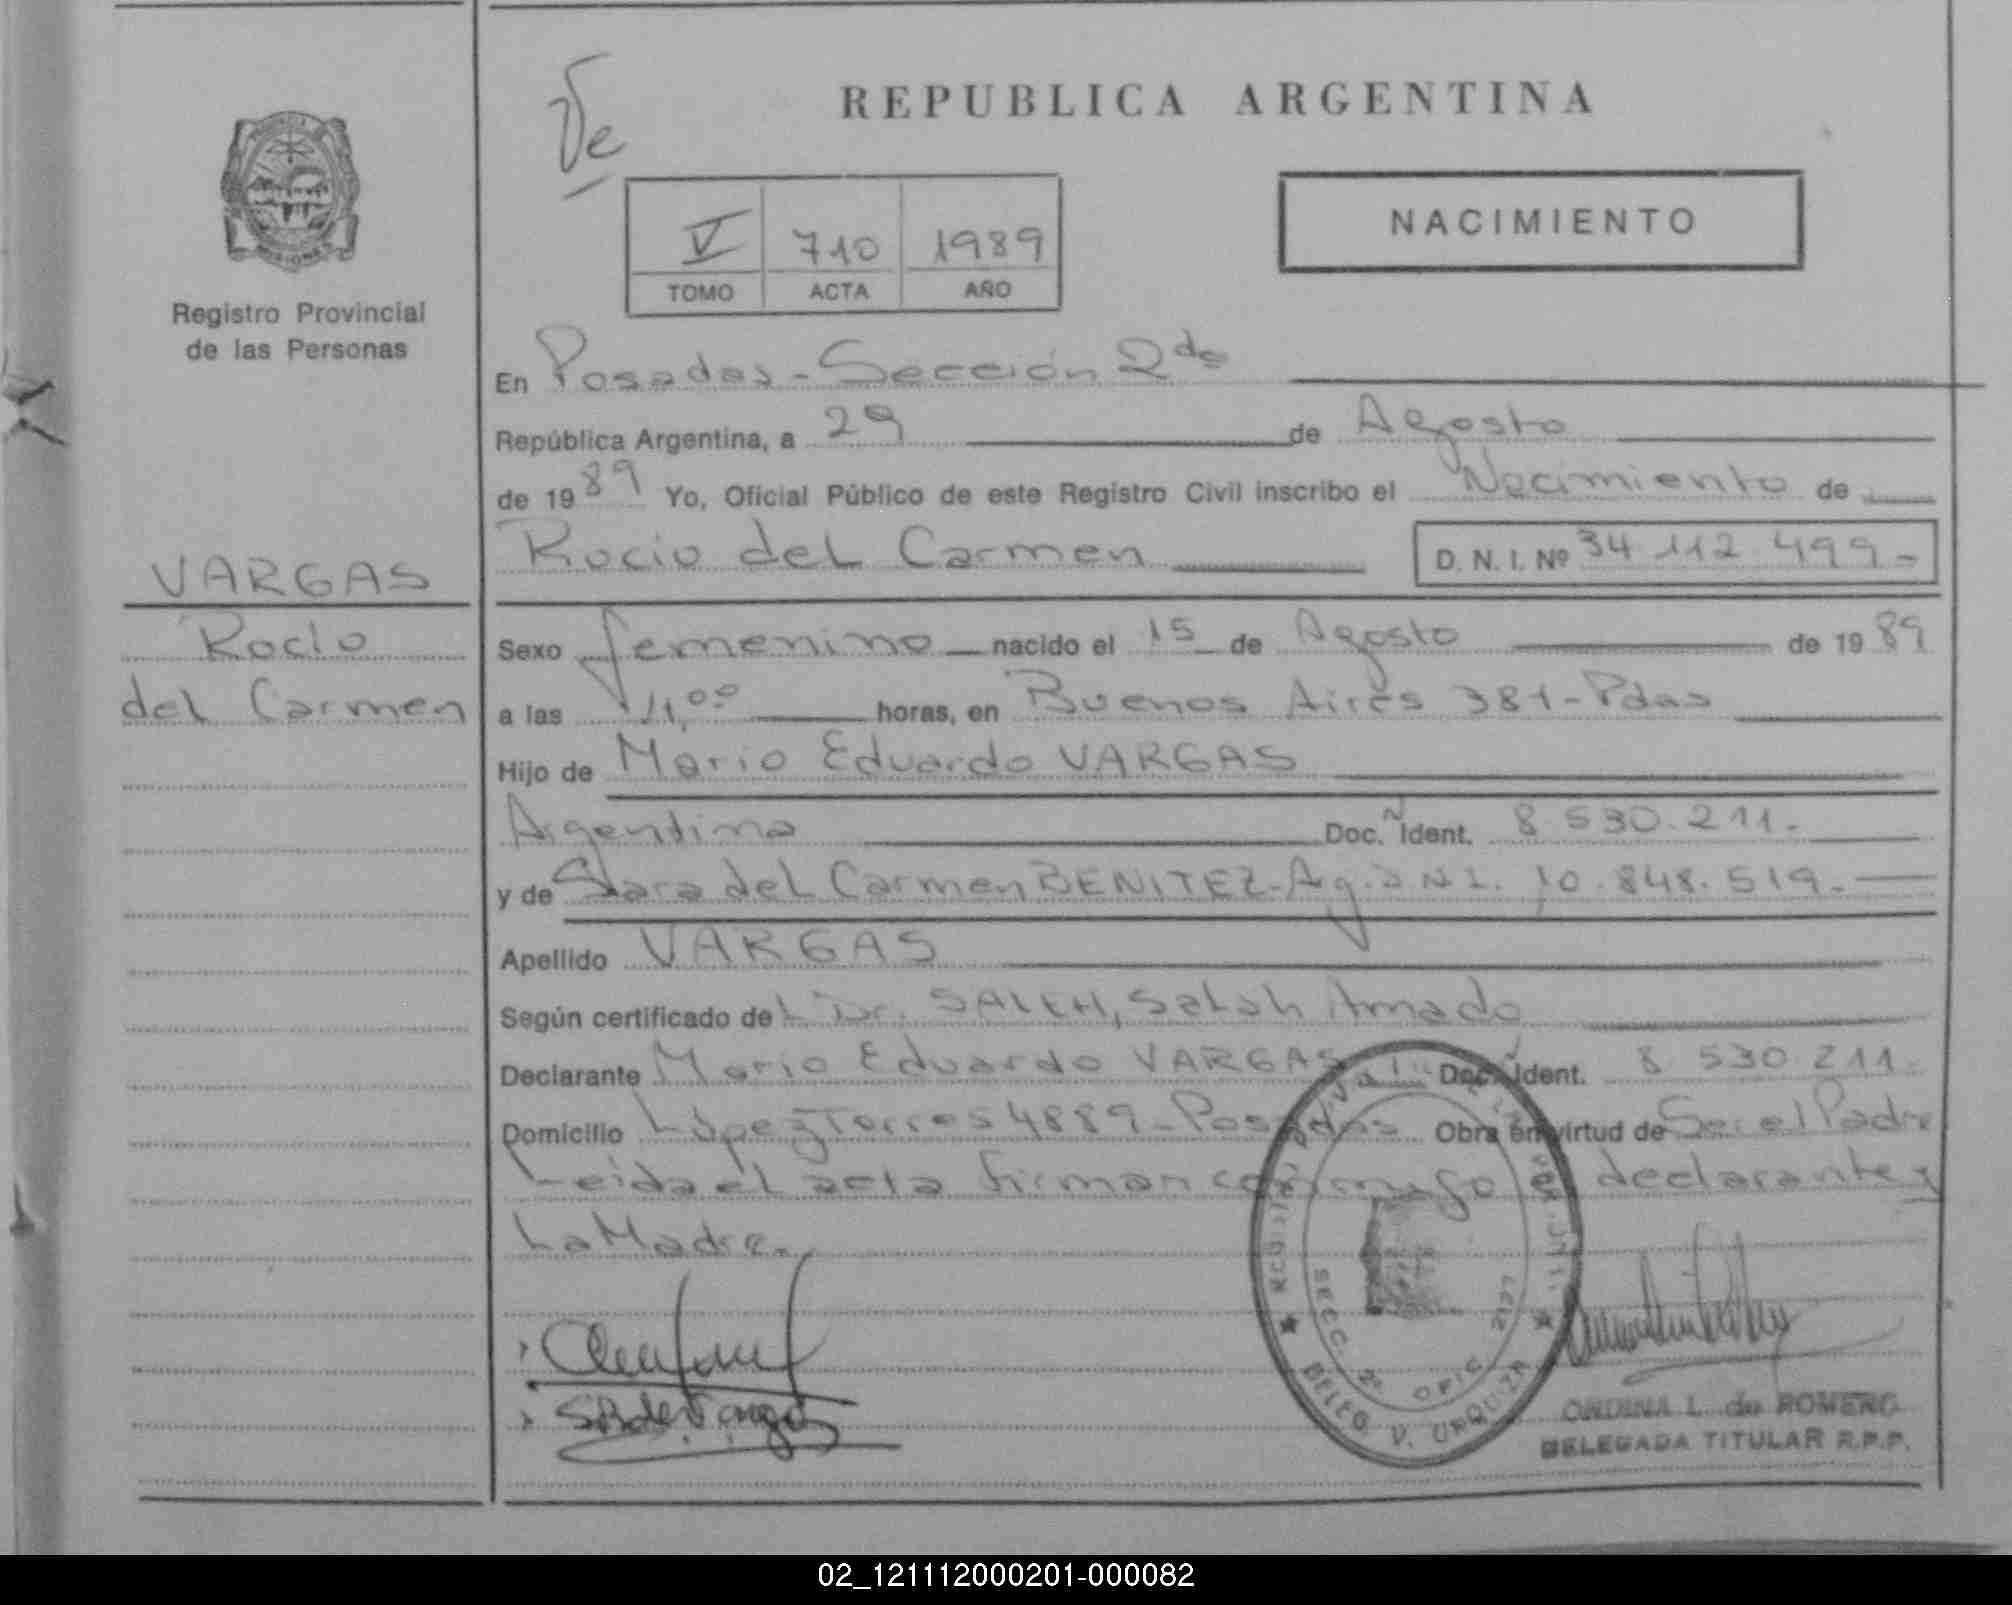 REPUBLICA ARGENTINA
Ve
NACIMIENTO
V 710 1989
TOMO ACTA AÑO
Registro Provincial
de las Personas
En Posadas - Sección 2da
República Argentina, a 29 de Agosto
de 1989 Yo, Oficial Público de este Registro Civil inscribo el Nacimiento de
Rocio del Carmen D. N. I. Nº 34 112 499-
VARGAS
Rocio
del Carmen
Sexo femenino nacido el 15 de Agosto de 1989
a las 11,00 horas, en Buenos Aires 381-Pdas
Hijo de Mario Eduardo VARGAS
Argentina Doc. Ident. 8 530.211.
y de Sara del Carmen BENITEZ-Arg. D N I. 10.848.519.
Apellido VARGAS
Según certificado del Dr. SALEH, Salah Amado
Declarante Mario Eduardo VARGAS Doc. Ident. 8 530 211.
Domicilio López Torres 4889-Posadas Obra en virtud de Ser el Padre
Leida el acta firman conmigo el declarante y
La Madre.
SECC. 2ª OFIC. 2177
DELEG V. URQUIZA
ORDINA L. de ROMERO
DELEGADA TITULAR R.P.P.
02_121112000201-000082